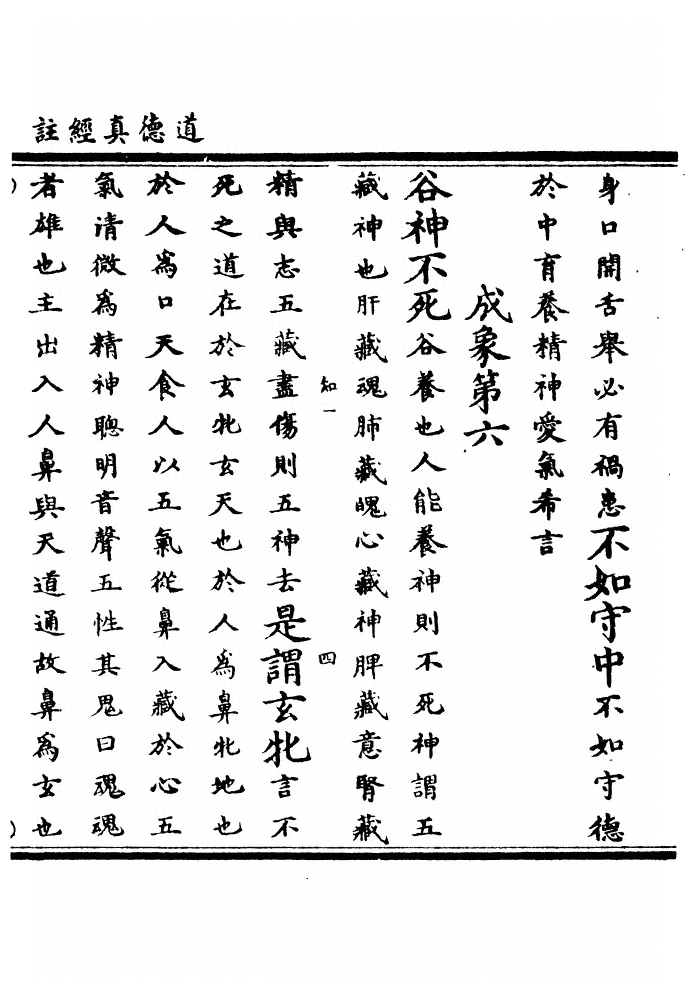 道德真經註
身口開舌舉必有禍患不如守中不如守德
於中育養精神愛氣希言
成象第六
谷神不死谷養也人能養神則不死神謂五
藏神也肝藏魂肺藏魄心藏神脾藏意腎藏
精與志五藏盡傷則五神去是謂玄牝言不
知一
四
死之道在於玄牝玄天也於人為鼻牝地也
於人為口天食人以五氣從鼻入藏於心五
氣清微為精神聰明音聲五性其鬼曰魂魂
者雄也主出入人鼻與天道通故鼻為玄也